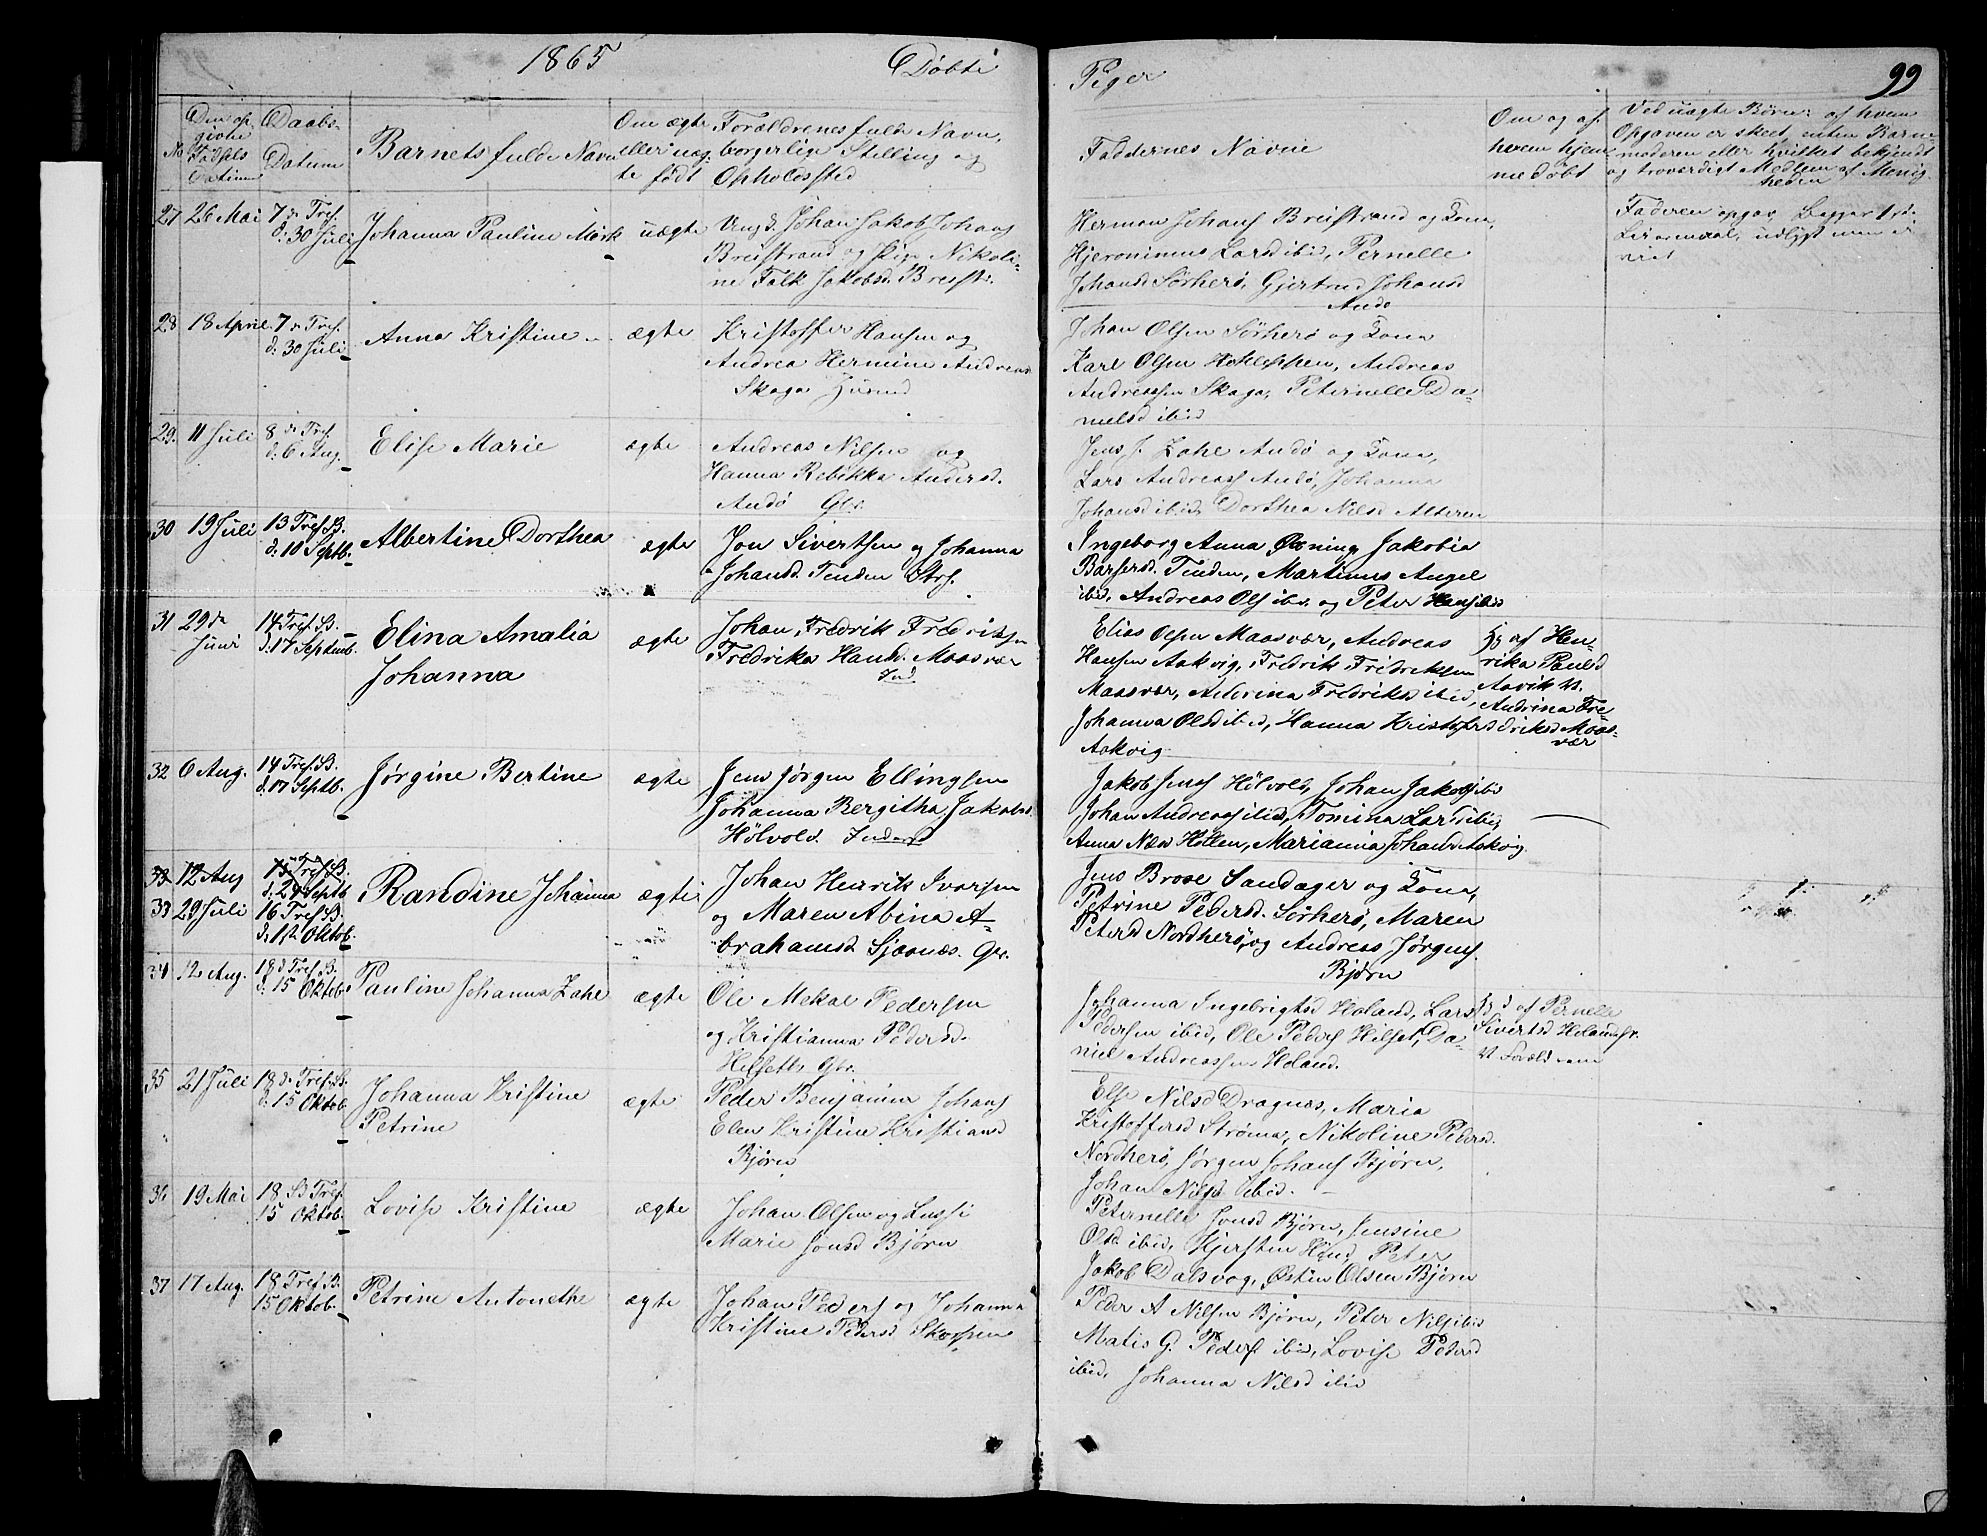 1865 Døbte Piger 99
No Den opgivne Fødsels Datum
Daabs Datum
Barnets fulde Navn
Om ægte eller uægte født
Forældrenes fulde Navn, borgerlige Stilling og Opholdssted
Faddernes Navne
Om og af hvem hjemmedøbt
Ved uægte Børn: af hvem Opgaven er skeet, enten Barnemoderen eller hvilket bekjendt og troværdigt Medlem af Menigheden
27 26 Mai 7 S. Tref. d. 30 Juli Johanna Pauline Mørk uægte
Ungk. Johan Jakob Johans
Breistrand og Pige Nikoli-
ne Falk Jakobsd. Breistr.
Herman Johans Breistrand og Kona,
Hjeronimus Larss ibid, Pernelle
Johansd Sørherø, Gjertrud Johansd
Andø
Faderen opgav Begges 1ste
Leiermaal
28 18 April 7 S. Tref. d. 30 Juli Anna Kristine ægte
Kristoffer Hansen og
Andrea Hermine Andreasd
Skaga
Johan Olsen Sørherø og Kona
Karl Olsen, Andreas
Andreassen Skaga, Peternelle Da-
nielsd ibid
29. 11 Juli 8 S. Tref. d. 6 Aug. Elise Marie ægte
Andreas Nilsen og
Hanna Rebekka Andersd.
Andø Gbr.
Jens J. Zahl Andø og Kona,
Lars Andreass Andø, Johanna
Johansd ibid, Dorthea Nilsd Alteren
30 19 Juli 13 Tref. S. d. 10 Septb. Albertine Dorthea ægte
Jon Sivertsen og Johanna
Johansd. Tenden Strs.
Ingeborg Anna Jakobia
Tenden, Martinus Angel
ibid, Andreas Ols ibid og Peter Hans ibid
31 29de Juni 14 Tref. S. d. 17 Septemb. Elina Amalia
Johanna ægte
Johan Fredrik Fredriksen
Fredrika Hansd. Maasvær
Ind
Elias Olsen Maasvær, Andreas
Hansen Aakvig, Fredrik Fridriksen
Maasvær, Andrina Fredriksd ibid,
Johanna Olsd ibid, Hanna Kristofersd
Aakvig.
Hj af Hen-
rika Paulsd
Aavik
Andrina Fre-
driksd Maas-
vær
32 6 Aug. 14 Tref. S. d. 17 Septb. Jørgine Bertine ægte
Jens Jørgen Ellingsen
Johanna Bergitha Jakobsd
Hölvold. Inderst
Jakob Jens Hölvold, Johan Jakobs ibid
Johan Andreass ibid, Tomina Larsd ibid,
Anna Næss Holten, Marianna Johansd Aakvig.
33 12 Aug 15 Tref. S. d. 24 Septb
33 29 Juli 16 Tref. S. d. 1 Oktob. Randine Johanna ægte
Johan Henrik Ivarsen
og Maren Abina A-
brahamsd Sjaanes. Gbr.
Jens Brose Sandager og Kona,
Petrine Pedersd. Sørherø, Maren
Petersd Nordherø, og Andreas Jørgens.
Bjørn
34 12 Aug. 18 d Tref. S. d. 15 Oktob. Pauline Johanna Zahl ægte
Ole Mekal Pedersen
og Kristianna Pedersd.
Helsett Gbr.
Johanna Ingebrigtsd Holand, Lars
Pedersen ibid, Ole Peders Hilset, Da-
niel Andreassen Holand.
Hj d af Pernelle
Sivertsd Holand
35 21 Juli 18 d. Tref. S. d. 15 Oktob Johanna Kristine
Petrine ægte
Peder Benjamin Johans
Elen Kristine Kristiansd
Bjørn
Else Nilsd Dragnæs, Maria
Kristoffersd Strøma, Nikoline Pedersd.
Nordherø, Jørgen Johans Bjørn,
Johan Nilss ibid.
36 19 Mai 18 S. Tref. 15 Oktob. Lovise Kristine ægte
Johan Olsen og Lussi
Marie Jonsd Bjørn
Peternelle Jonsd Bjørn, Jensine
Olsd. ibid, Kjersten Hansd, Peter
Jakob Dalsvog, Østen Olsen Bjørn
37 17 Aug. 18 Tref. S. 15 Oktob. Petrine Antonethe ægte
Johan Peders og Johanna
Kristine Pedersd Skorpen
Peder A Nilsen Bjørn, Peter Nils ibid
Matis G. Peders ibid, Lovise Petersd
ibid, Johanna Nilsd ibid